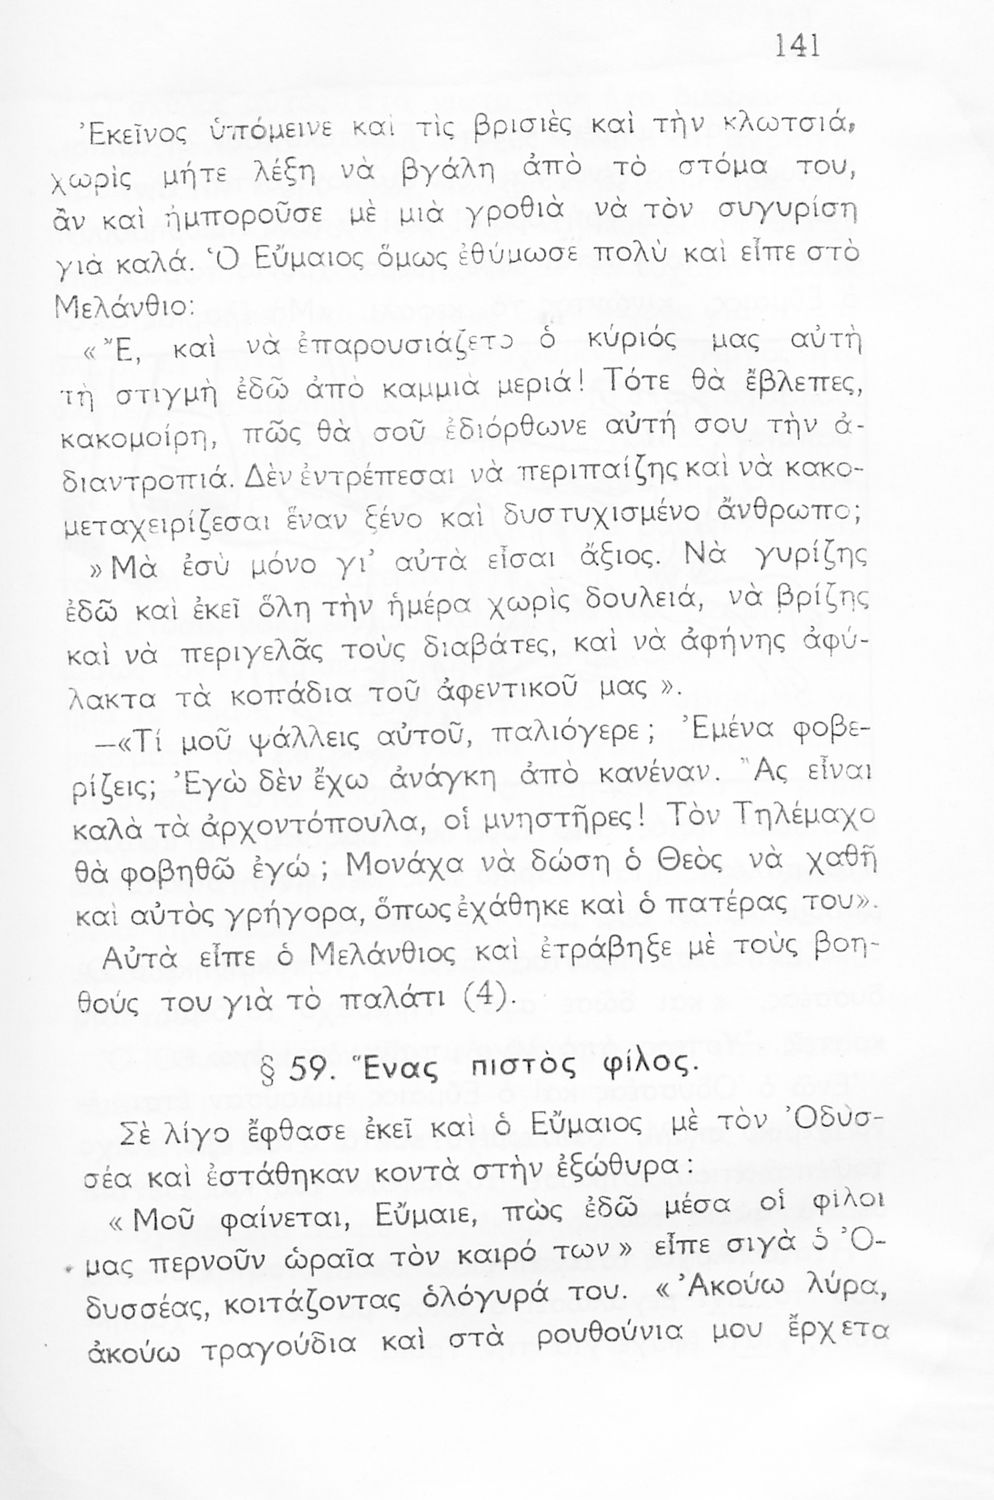 141
Ἐκεῖνος ὑπόμεινε καὶ τὶς βρισιὲς καὶ τὴν κλωτσιά,
χωρὶς μήτε λέξη νὰ βγάλη ἀπὸ τὸ στόμα του,
ἂν καὶ ἠμποροῦσε μὲ μιὰ γροθιὰ νὰ τὸν συγυρίση
γιὰ καλά. Ὁ Εὔμαιος ὅμως ἐθύμωσε πολὺ καὶ εἶπε στὸ
Μελάνθιο:
« Ἔ, καὶ νὰ ἐπαρουσιάζετο ὁ κύριός μας αὐτὴ
τὴ στιγμὴ ἐδῶ ἀπὸ καμμιὰ μεριά! Τότε θὰ ἔβλεπες,
κακομοίρη, πῶς θὰ σοῦ ἐδιόρθωνε αὐτή σου τὴν ἀ-
διαντροπιά. Δὲν ἐντρέπεσαι νὰ περιπαίζης καὶ νὰ κακο-
μεταχειρίζεσαι ἕναν ξένο καὶ δυστυχισμένο ἄνθρωπο;
» Μὰ ἐσὺ μόνο γι' αὐτὰ εἶσαι ἄξιος. Νὰ γυρίζης
ἐδῶ καὶ ἐκεῖ ὅλη τὴν ἡμέρα χωρὶς δουλειά, νὰ βρίζης
καὶ νὰ περιγελᾶς τοὺς διαβάτες, καὶ νὰ ἀφήνης ἀφύ-
λακτα τὰ κοπάδια τοῦ ἀφεντικοῦ μας ».
—«Τί μοῦ ψάλλεις αὐτοῦ, παλιόγερε ; Ἐμένα φοβε-
ρίζεις; Ἐγὼ δὲν ἔχω ἀνάγκη ἀπὸ κανέναν. Ἂς εἶναι
καλὰ τὰ ἀρχοντόπουλα, οἱ μνηστῆρες! Τὸν Τηλέμαχο
θὰ φοβηθῶ ἐγώ ; Μονάχα νὰ δώση ὁ Θεὸς νὰ χαθῆ
καὶ αὐτὸς γρήγορα, ὅπως ἐχάθηκε καὶ ὁ πατέρας του».
Αὐτὰ εἶπε ὁ Μελάνθιος καὶ ἐτράβηξε μὲ τοὺς βοη-
θούς του γιὰ τὸ παλάτι (4).
§ 59. Ἕνας πιστὸς φίλος.
Σὲ λίγο ἔφθασε ἐκεῖ καὶ ὁ Εὔμαιος μὲ τὸν Ὀδυσ-
σέα καὶ ἐστάθηκαν κοντὰ στὴν ἐξώθυρα :
« Μοῦ φαίνεται, Εὔμαιε, πὼς ἐδῶ μέσα οἱ φίλοι
μας περνοῦν ὡραῖα τὸν καιρό των » εἶπε σιγὰ ὁ Ὀ-
δυσσέας, κοιτάζοντας ὁλόγυρά του. « Ἀκούω λύρα,
ἀκούω τραγούδια καὶ στὰ ρουθούνια μου ἔρχετα